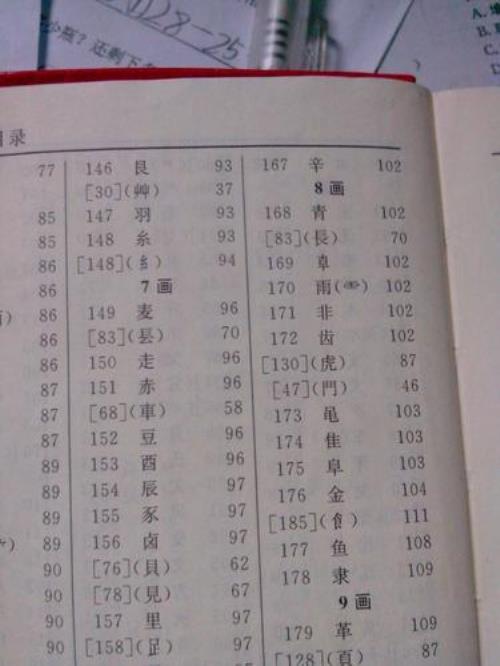 28-25
少瓶？还剩下
A.
B.
C.
D
目录
77
85
85
86
86
86
86
87
87
87
89
89
89
89
90
90
90
90
146 艮 93
[30](艸) 37
147 羽 93
148 糸 93
[148](糹) 94
7画
149 麦 96
[83](镸) 70
150 走 96
151 赤 96
[68](車) 58
152 豆 96
153 酉 96
154 辰 97
155 豕 97
156 卤 97
[76](貝) 62
[78](見) 67
157 里 97
[158](𧾷) 97
167 辛 102
8画
168 青 102
[83](長) 70
169 卓 102
170 雨(⻗) 102
171 非 102
172 齿 102
[130](虎) 87
[47](門) 46
173 黾 103
174 隹 103
175 阜 103
176 金 104
[185](飠) 111
177 鱼 108
178 隶 109
9画
179 革 109
[128](頁) 87